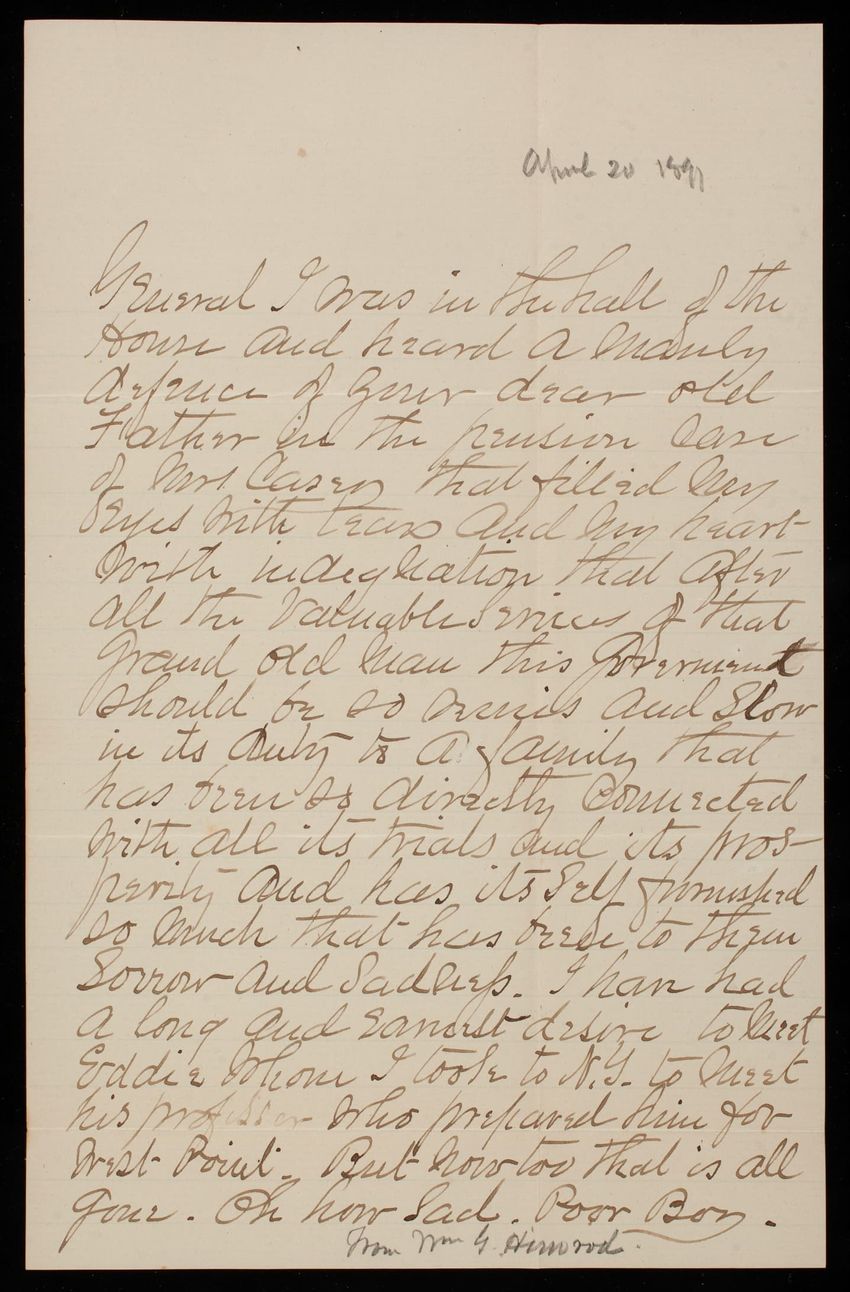 April 20 1891
General I was in the hall of the
House and heard a Manly
defence of your dear old
Father in the pension Case
of Mrs Casey that filled My
Eyes With tears and My heart
With indegnation that after
all the Valuable Services of that
Grand old Man this Goverment
should be so remis and Slow
in its duty to a family that
has been so directly Connected
With all its trials and its pros-
perity And has itsSelf furnished
so Much that has been to them
Sorrow and Sadness. I have had
A long and Earnest desire to Meet
Eddie Whom I took to N.Y. to Meet
his professor Who prepared him for
West Point. But Now too that is all
gone. Oh how Sad. Poor Boy.
From Wm G. Himrod.